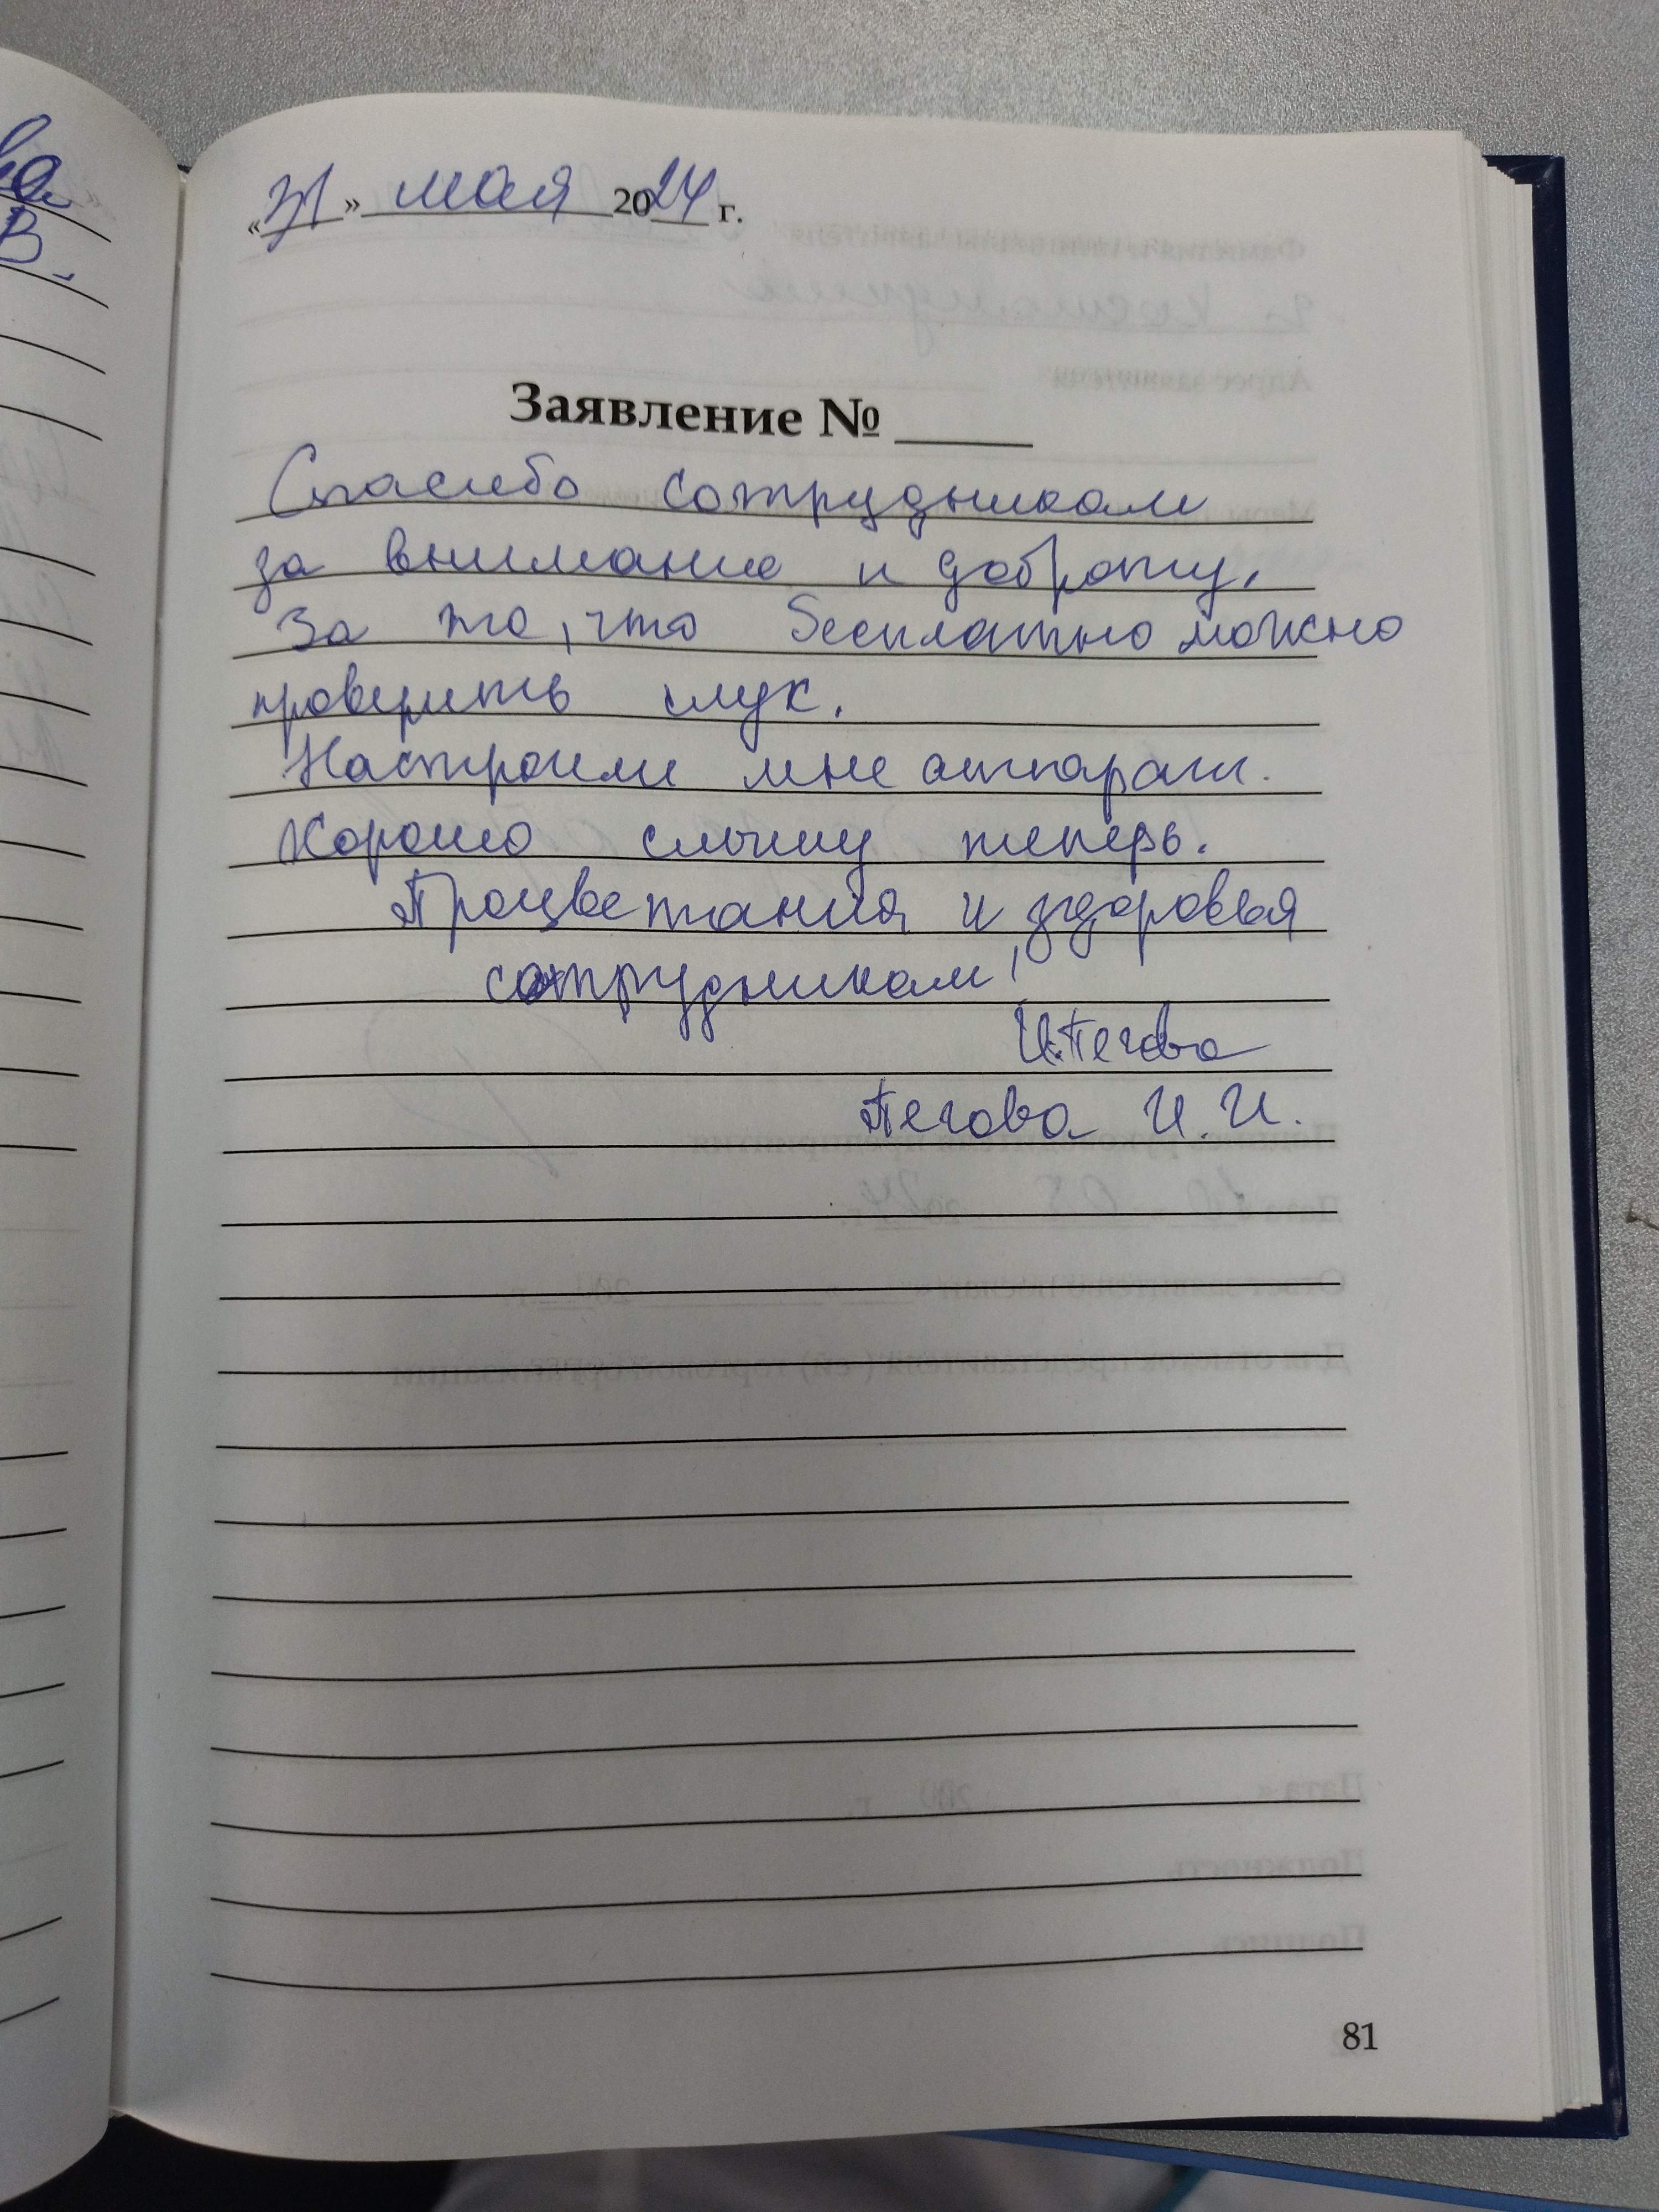 ва
В.
«31» мая 2024 г.
Заявление № ____
Спасибо сотрудникам
за внимание и доброту.
За то, что бесплатно можно
проверить слух.
Настроили мне аппарат.
Хорошо слышу теперь.
Процветания и здоровья
сотрудникам!
И.Пегова
Пегова И.И.
81